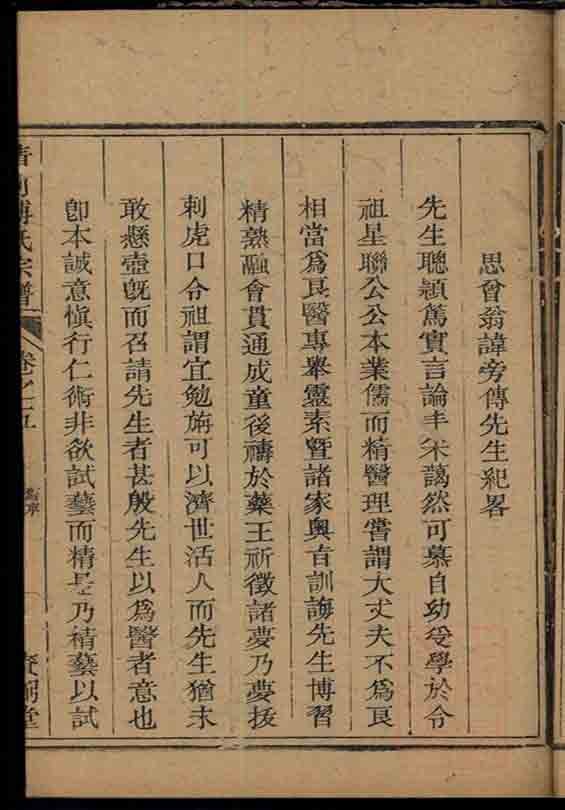 思曾翁諱旁傳先生紀畧
先生聰穎篤實言論丰采藹然可慕自幼受學於令
祖星聯公公本業儒而精醫理嘗謂大丈夫不爲良
相當爲良醫專舉靈素暨諸家奥旨訓誨先生博習
精熟融會貫通成童後禱於藥王祈徵諸夢乃夢拔
刺虎口令祖謂宜勉旃可以濟世活人而先生猶未
敢懸壺旣而召請先生者甚殷先生以爲醫者意也
卽本誠意愼行仁術非欲試藝而精是乃精藝以試
氏宗譜
卷之五
堂